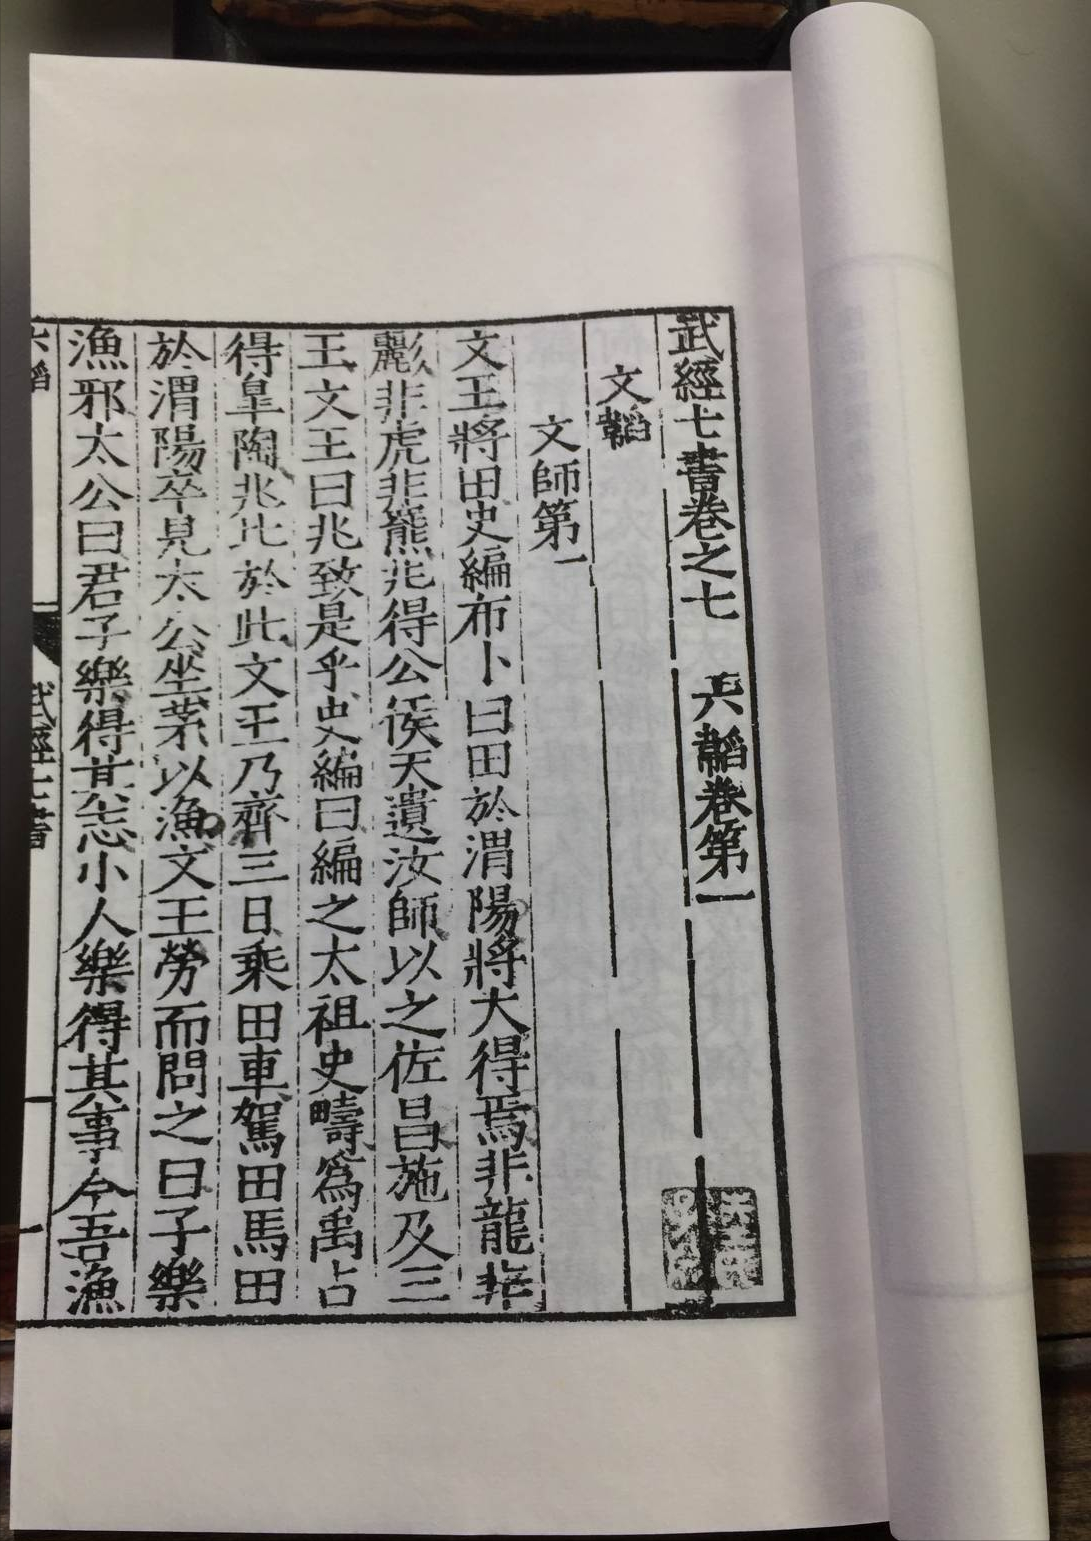 武經七書卷之七　六韜卷第一
文韜
文師第一
文王將田史編布卜曰田於渭陽將大得焉非龍非
彲非虎非羆兆得公侯天遺汝師以之佐昌施及三
王文王曰兆致是乎史編曰編之太祖史疇爲禹占
得皐陶兆比於此文王乃齊三日乘田車駕田馬田
於渭陽卒見太公坐茅以漁文王勞而問之曰子樂
漁邪太公曰君子樂得其志小人樂得其事今吾漁
六韜
武經七書
一